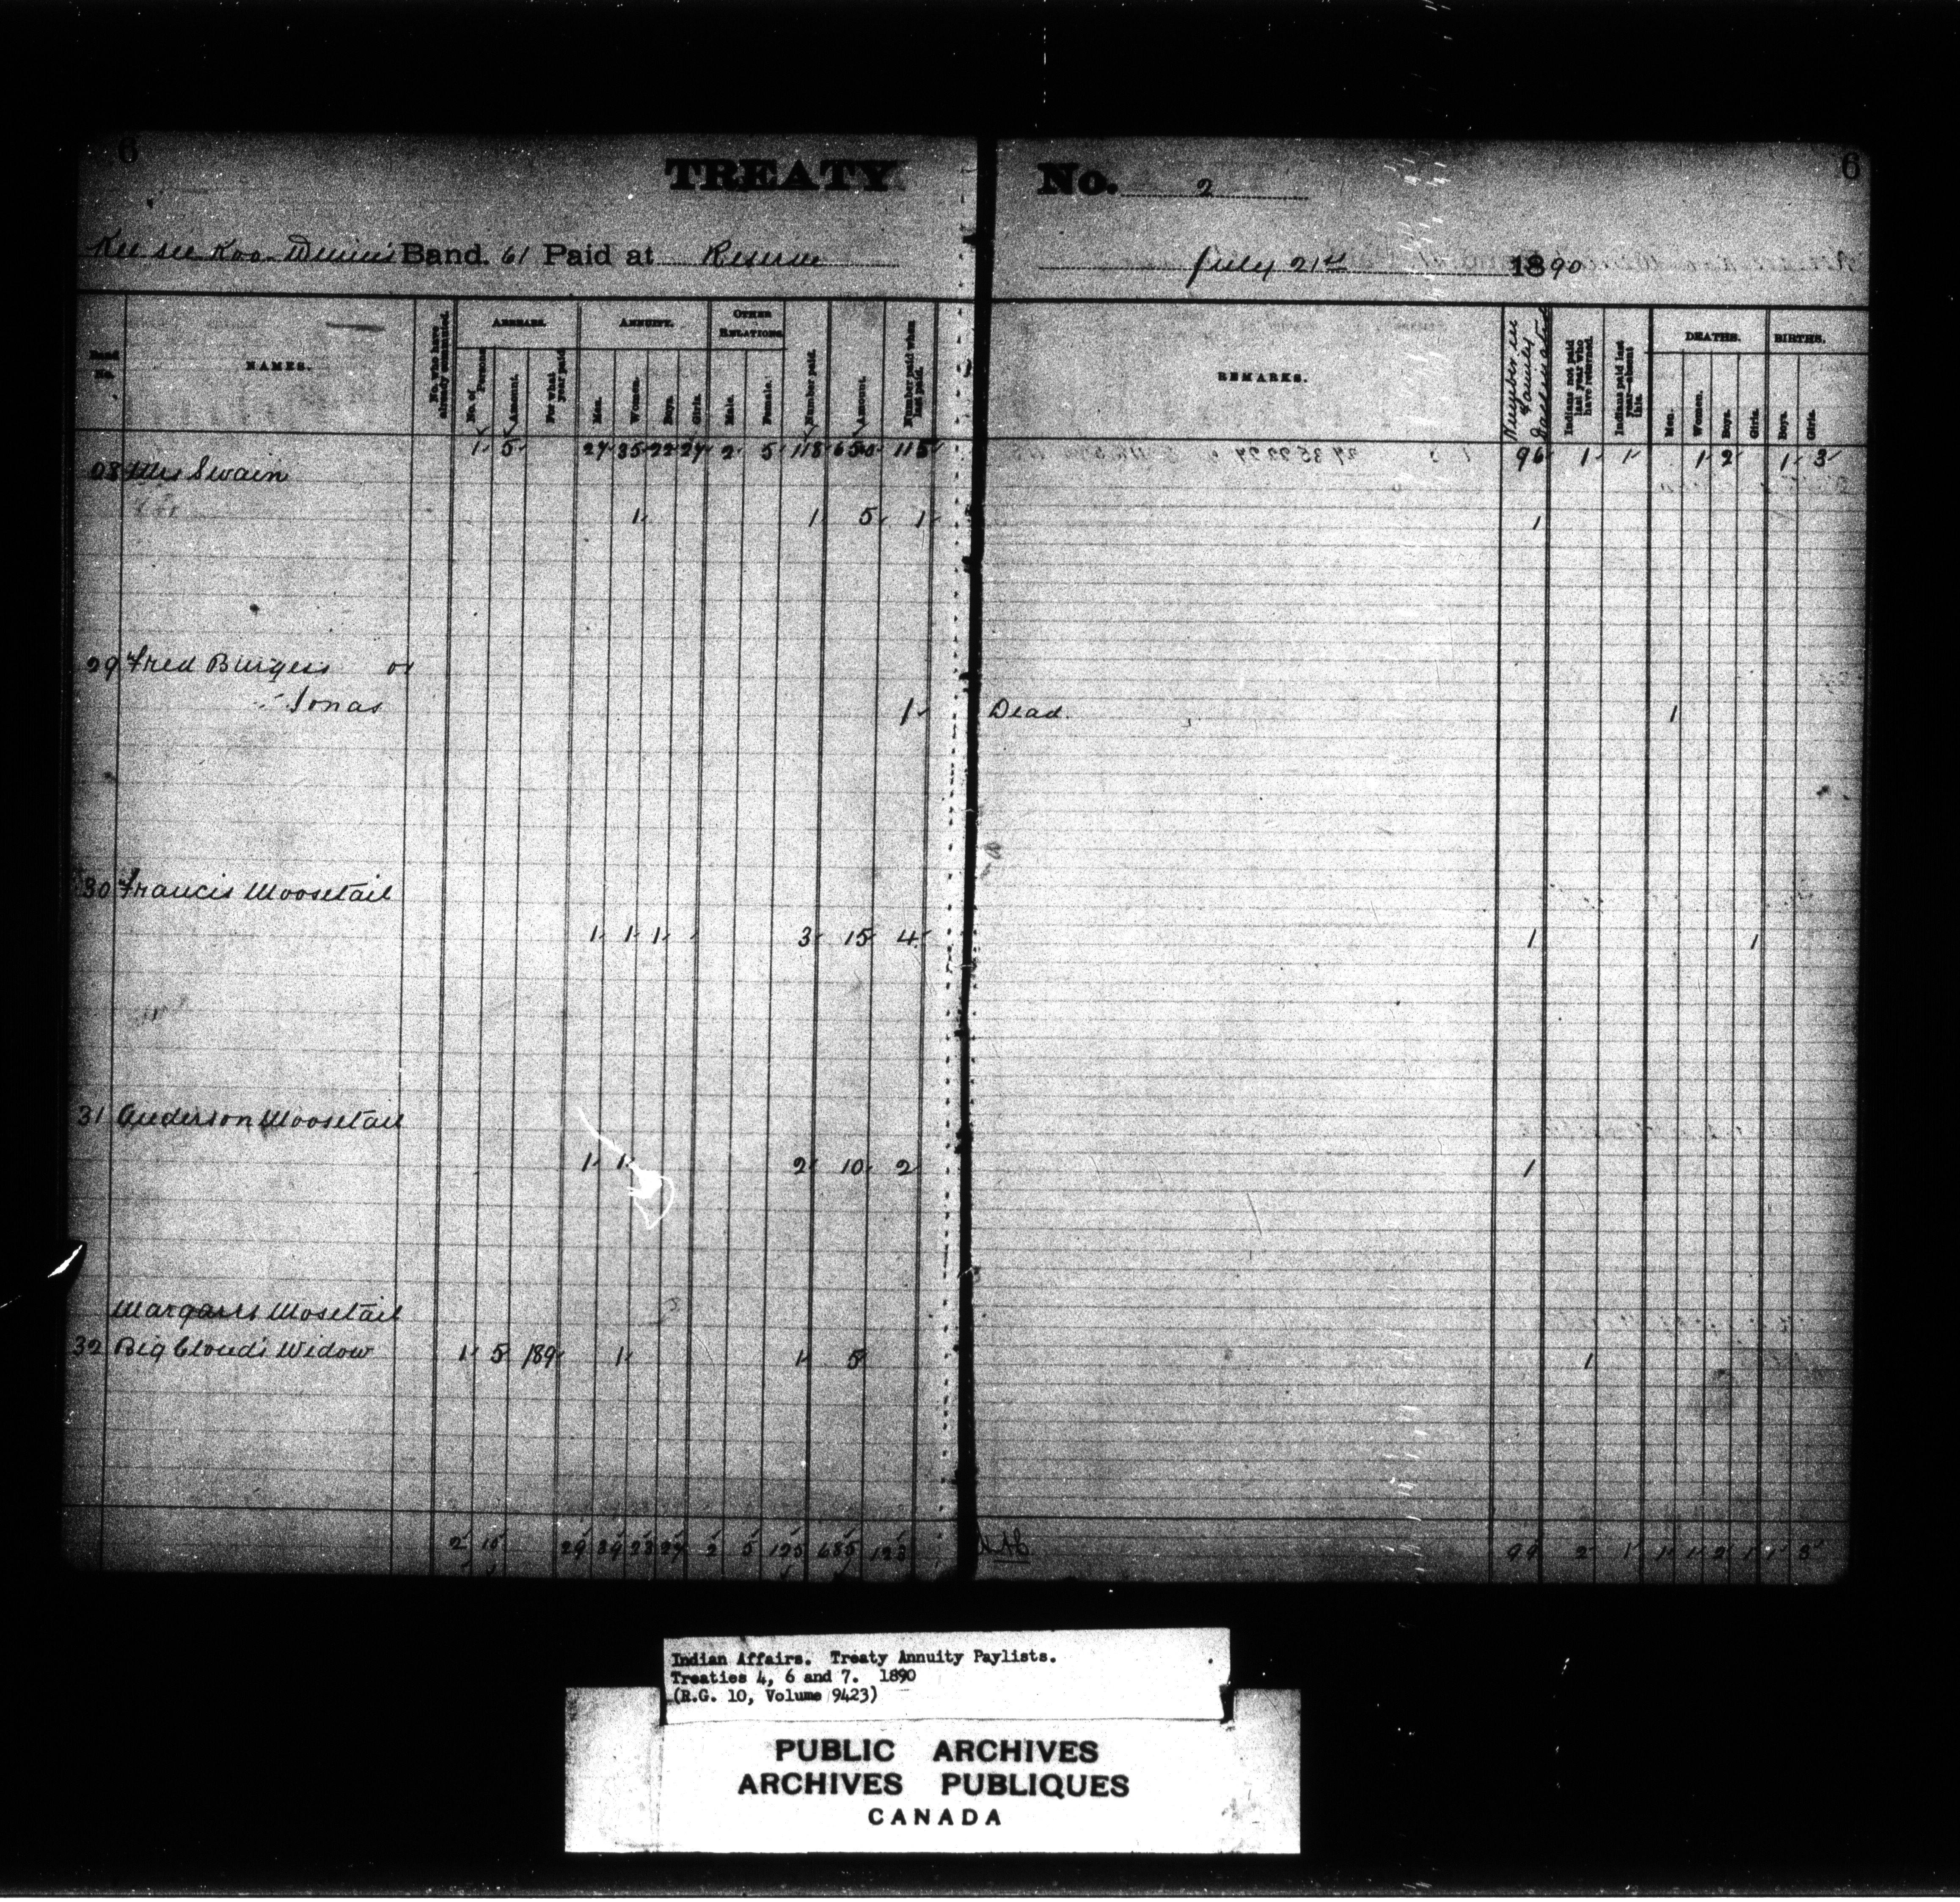 6 6
TREATY No. 2
Kee see Koo Wenin's Band. 61 Paid at Reserve July 21st 1890
Band No. NAMES. No. who have already commuted. ARREARS. ANNUITY. OTHER RELATIONS. Number paid. Amount. Number paid when last paid. REMARKS. Number in Family Indians not paid last year who have returned. Indians paid last year—absent this. DEATHS. BIRTHS.
No. of Persons Amount. For what year paid Men. Women. Boys. Girls. Male. Female. Men. Women. Boys. Girls. Boys. Girls.
1 5 27 35 22 27 2 5 118 115 96 1 1 1 2 1 3
28 Mrs Swain
1 1 5 1 1
29 Fred Burgess or
Jonas 1 Dead. 1
30 Francis Moosetail
1 1 1 3 15 4 1 1
31 Anderson Moosetail
1 1 2 10 2 1
Mosetail
32 Big Cloud's Widow 1 5 189 1 1 5 1
2 10 29 39 23 27 2 5 125 685 123 99 2 1 1 1 2 1 1 3
Indian Affairs. Treaty Annuity Paylists.
Treaties 4, 6 and 7. 1890
(R.G. 10, Volume 9423)
PUBLIC ARCHIVES
ARCHIVES PUBLIQUES
CANADA